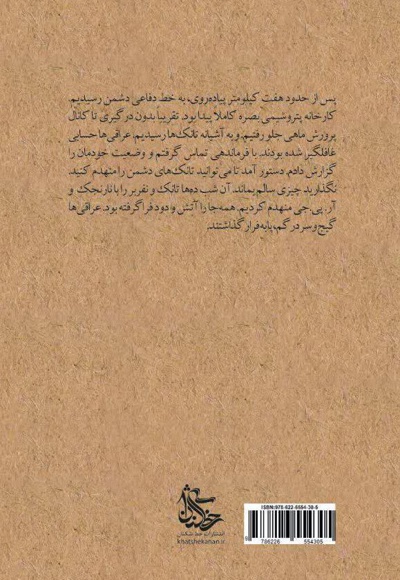 پس از حدود هفت کیلومتر پیاده‌روی، به خط دفاعی دشمن رسیدیم.
کارخانه پتروشیمی بصره کاملا پیدا بود. تقریباً بدون درگیری تا کانال
پرورش ماهی جلو رفتیم. و به آشیانه تانک‌ها رسیدیم. عراقی‌ها حسابی
غافلگیر شده بودند. با فرماندهی تماس گرفتم و وضعیت خودمان را
گزارش دادم. دستور آمد تا می‌توانید تانک‌های دشمن را منهدم کنید.
نگذارید چیزی سالم بماند. آن شب ده‌ها تانک و نفربر را با نارنجک و
آر. پی. جی منهدم کردیم. همه‌جا را آتش و دود فرا گرفته بود. عراقی‌ها
گیج و سر در گم، پا به فرار گذاشتند.
انتشارات خط شکنان
khatshekanan.ir
ISBN: 978-622-5554-30-5
9 786226 554305